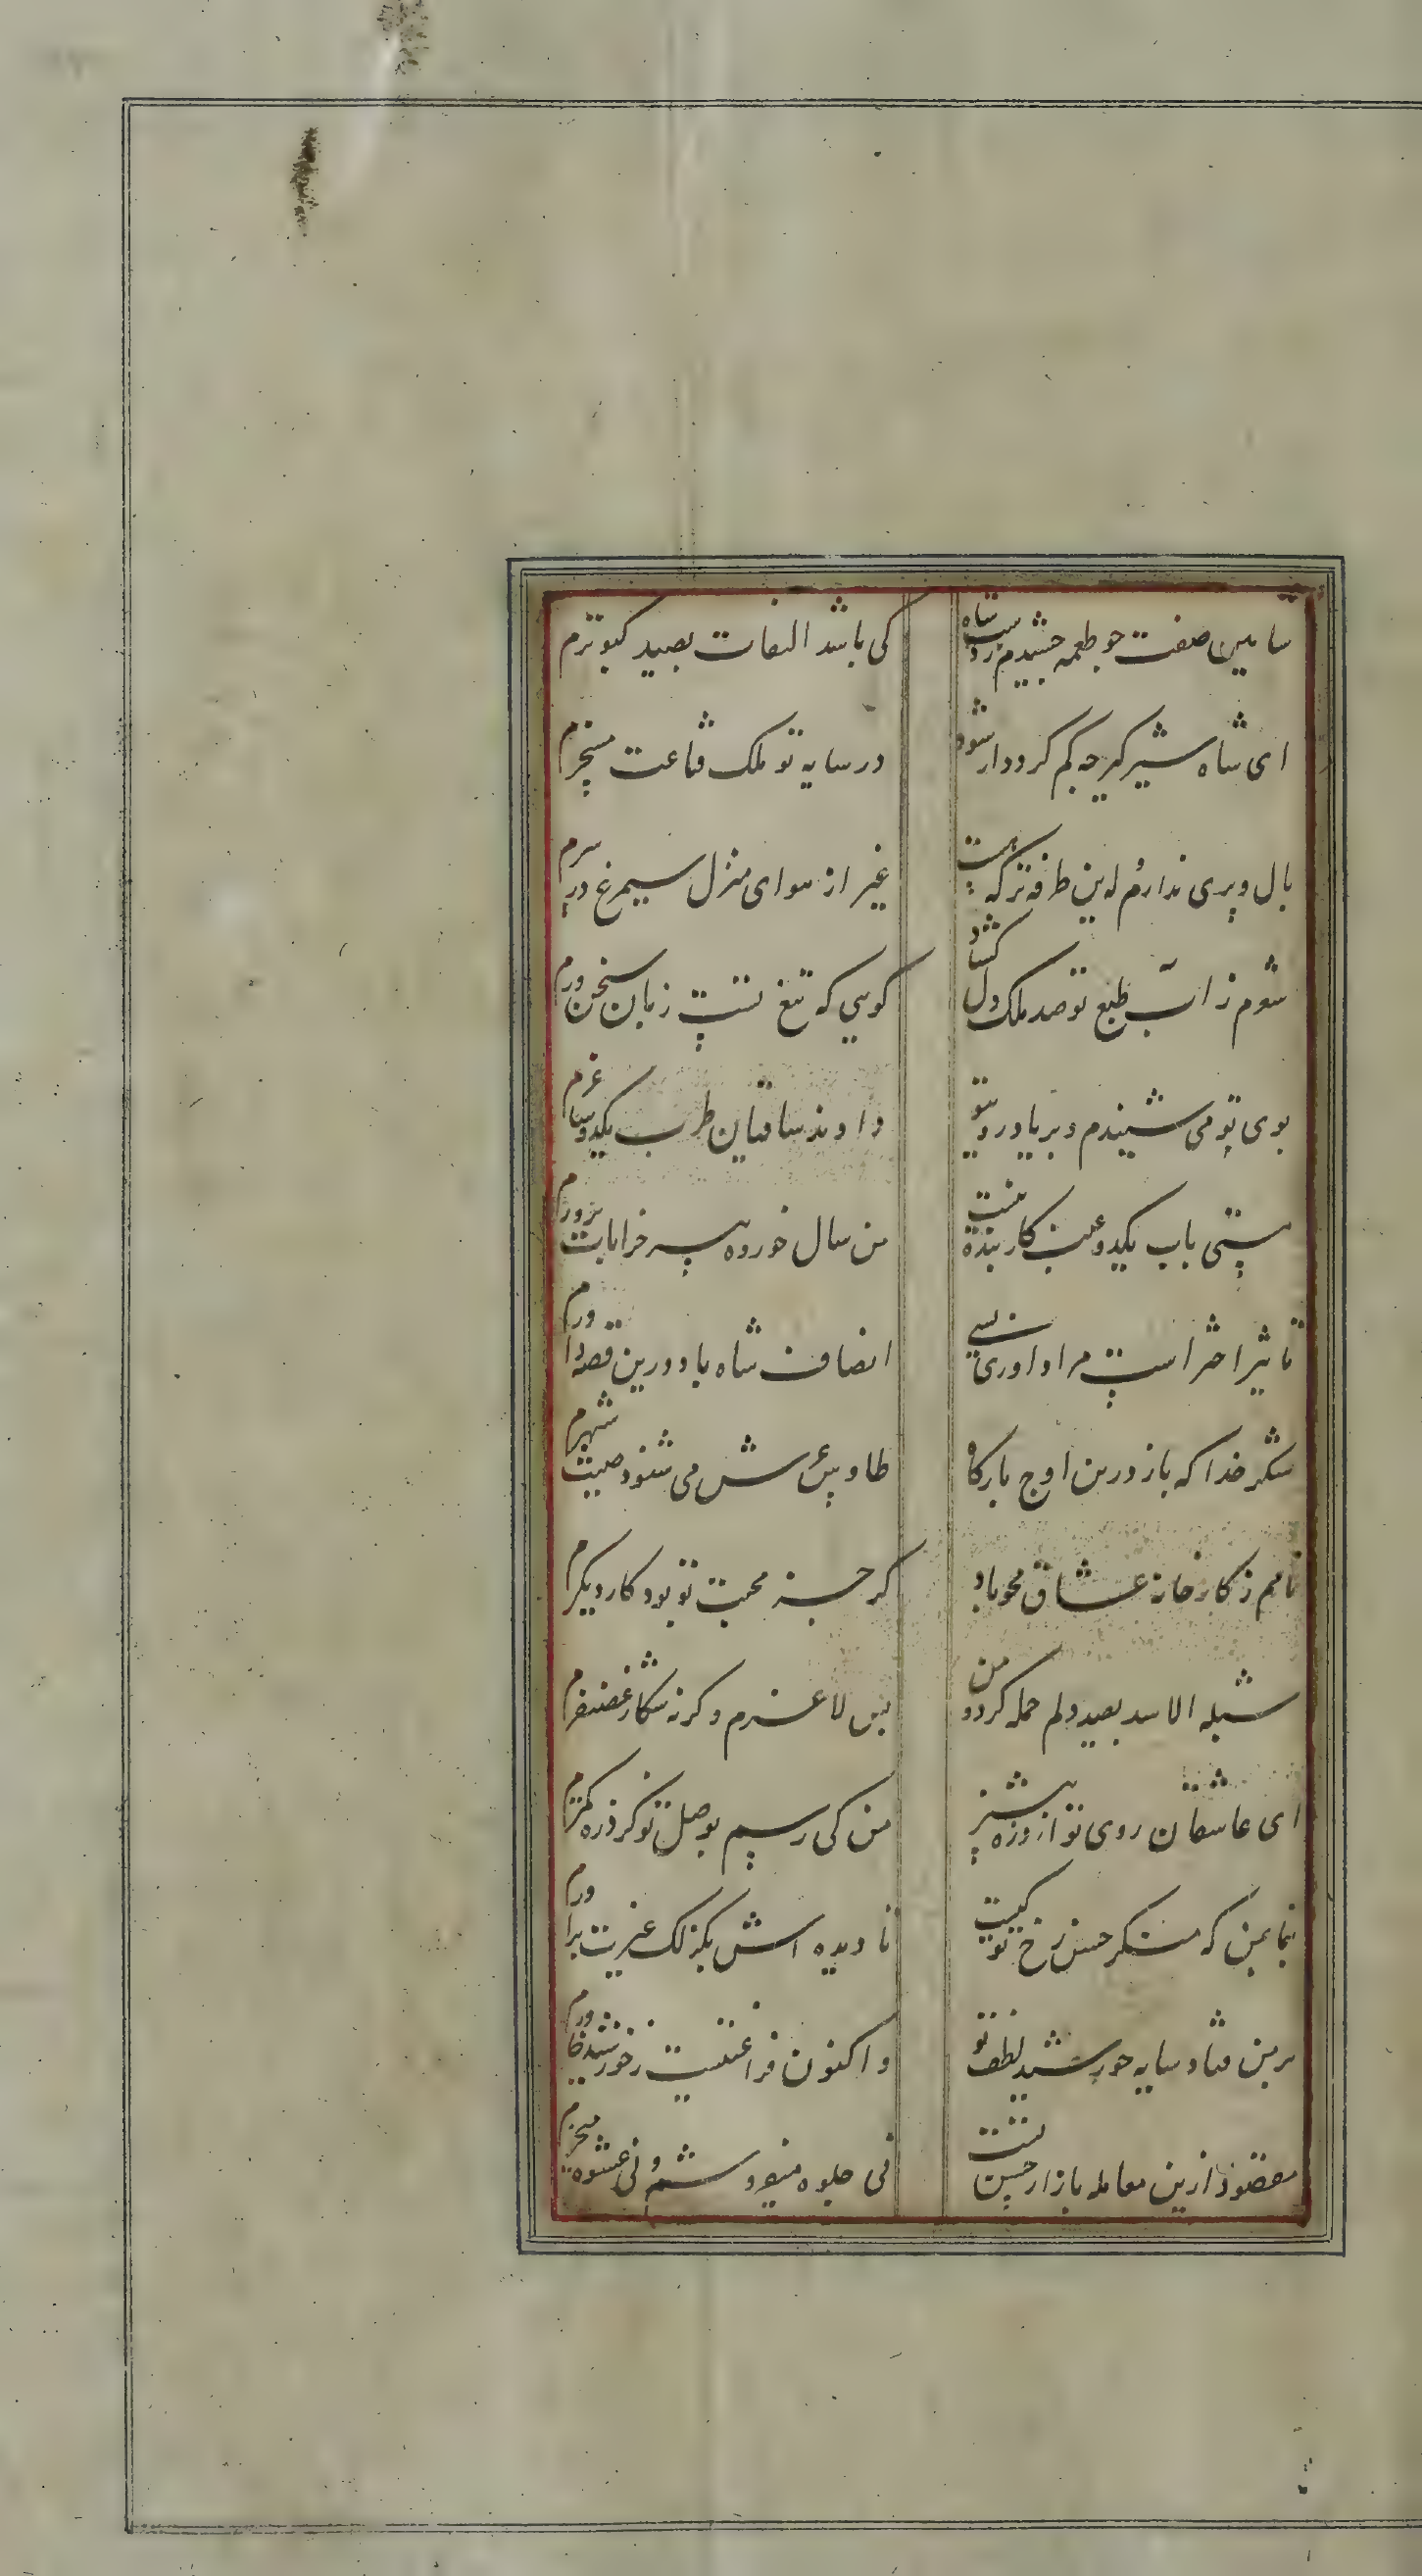 شاهین صفت چو طعمه چشیدم ز دست شاه
کی باشد التفات بصید کبوترم
ای شاه شیر کیر چه کم کردد ار شود
در سایه تو ملک قناعت میسرم
بال و پری ندارم و این طرفه تر که نیست
غیر از هوای منزل سیمرغ در سرم
شعرم ز آب طبع تو صد ملک دل کشاد
کویی که تیغ تست زبان سخن ورم
بوی تو می شنیدم و بر یاد روی تو
دادند ساقیان طرب یکدو ساغرم
مستی باب یکدو عنب کار بنده نیست
من سال خورده پیر خرابات پرورم
با سیر اختر است مرا داوری بسی
انصاف شاه باد درین قصه داورم
شکر خدا که باز درین اوج بارکاه
طاوس عرش می شنود صیت شهپرم
نامم ز کارخانه عشاق محو باد
کر جز محبت تو بود کار دیکرم
شبل الاسد بصید دلم حمله کرد و من
کر لاغرم و کرنه شکار غضنفرم
ای عاشقان روی تو از ذره بیشتر
من کی رسم بوصل تو کز ذره کمترم
بنما بمن که منکر حسن رخ تو کیست
تا دیده اش بکزلک غیرت برآورم
بر من فتاد سایه خورشید لطف تو
و اکنون فراغتست ز خورشید خاورم
مقصود ازین معامله بازار حسن تست
نی جلوه میفروشم و نی عشوه میخرم